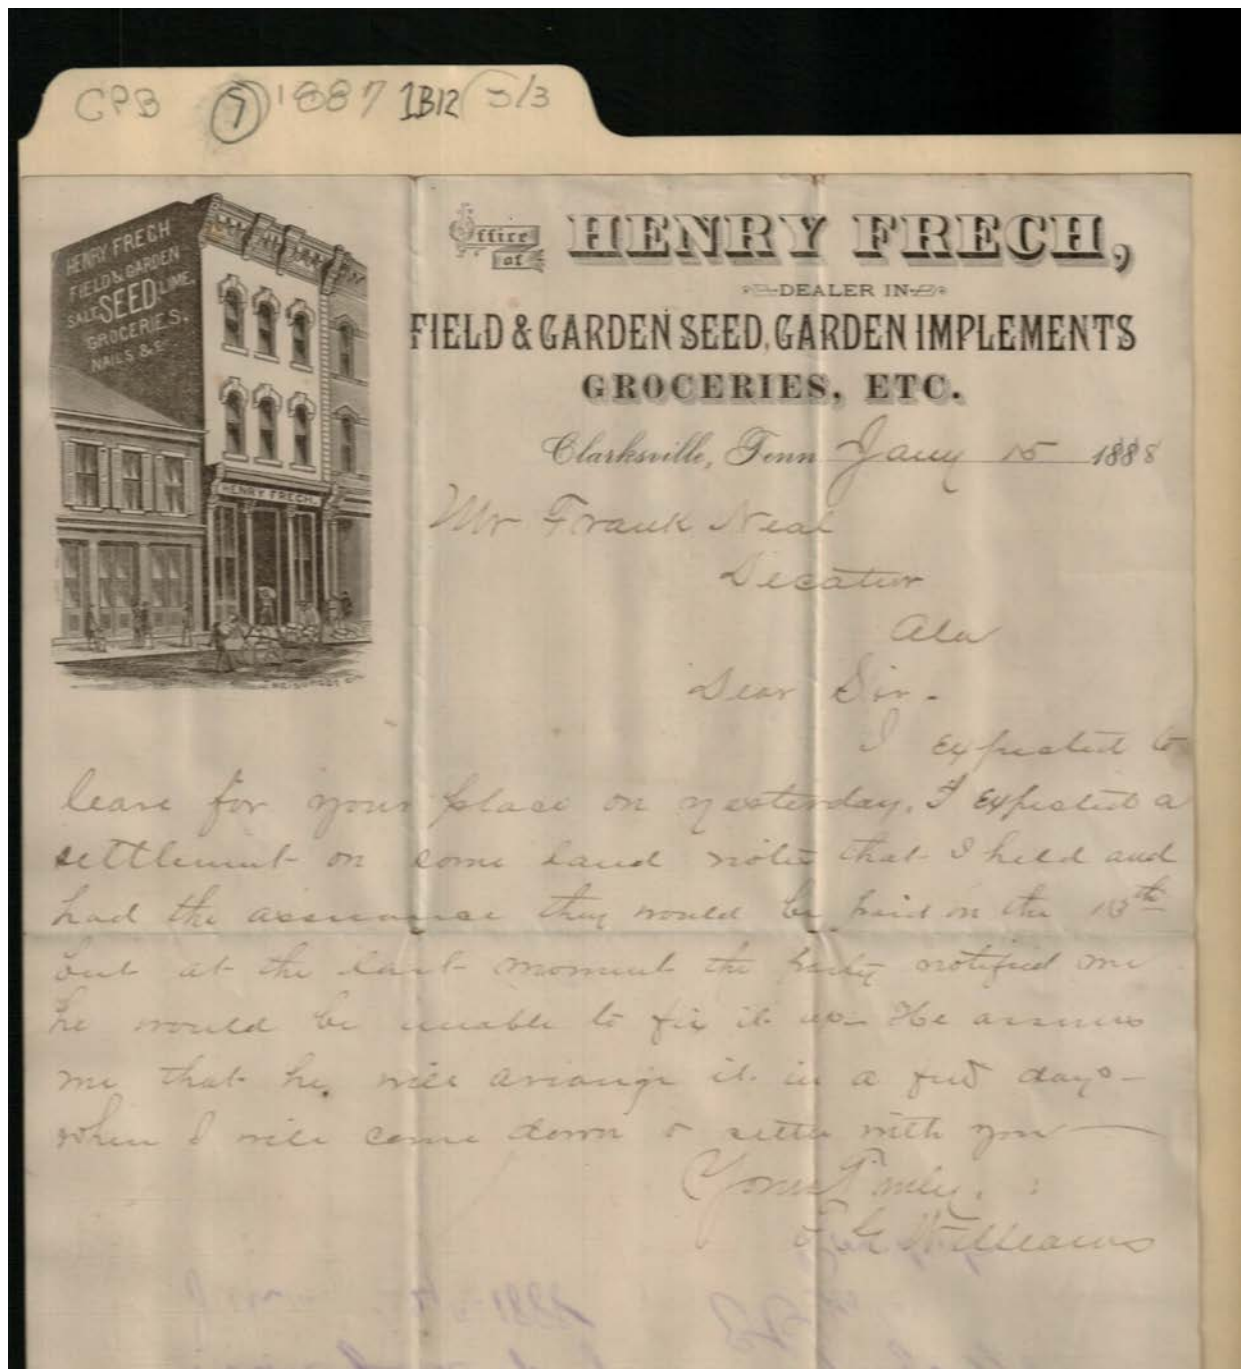 CPB 7 1887 1B12 5/3
HENRY FRECH
FIELD & GARDEN
SALT SEED LIME,
GROCERIES,
NAILS &c
HENRY FRECH.
Office of HENRY FRECH,
DEALER IN
FIELD & GARDEN SEED, GARDEN IMPLEMENTS
GROCERIES, ETC.
Clarksville, Tenn Jany 15 1888
Mr Frank Neal
Decatur
Ala
Dear Sir -
I expected to
leave for your place on yesterday, I expected a
settlement on some land notes that I held and
had the assurance they would be paid on the 13th
but at the last moment the party notified me
he would be unable to fix it up - He assures
me that he will arrange it in a few days -
when I will come down & settle with you
Yours Truly,
Williams